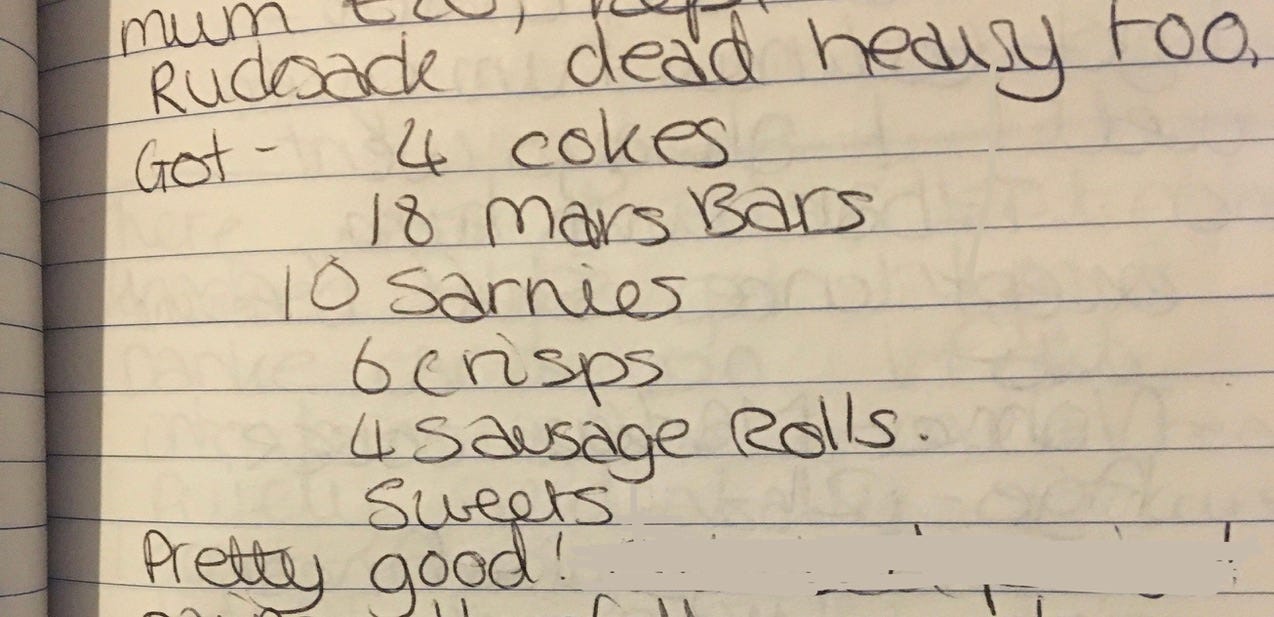 mum etc,
Rucksack dead heavy too,
Got - 4 cokes
18 Mars Bars
10 Sarnies
6 crisps
4 Sausage Rolls.
Sweets
Pretty good!